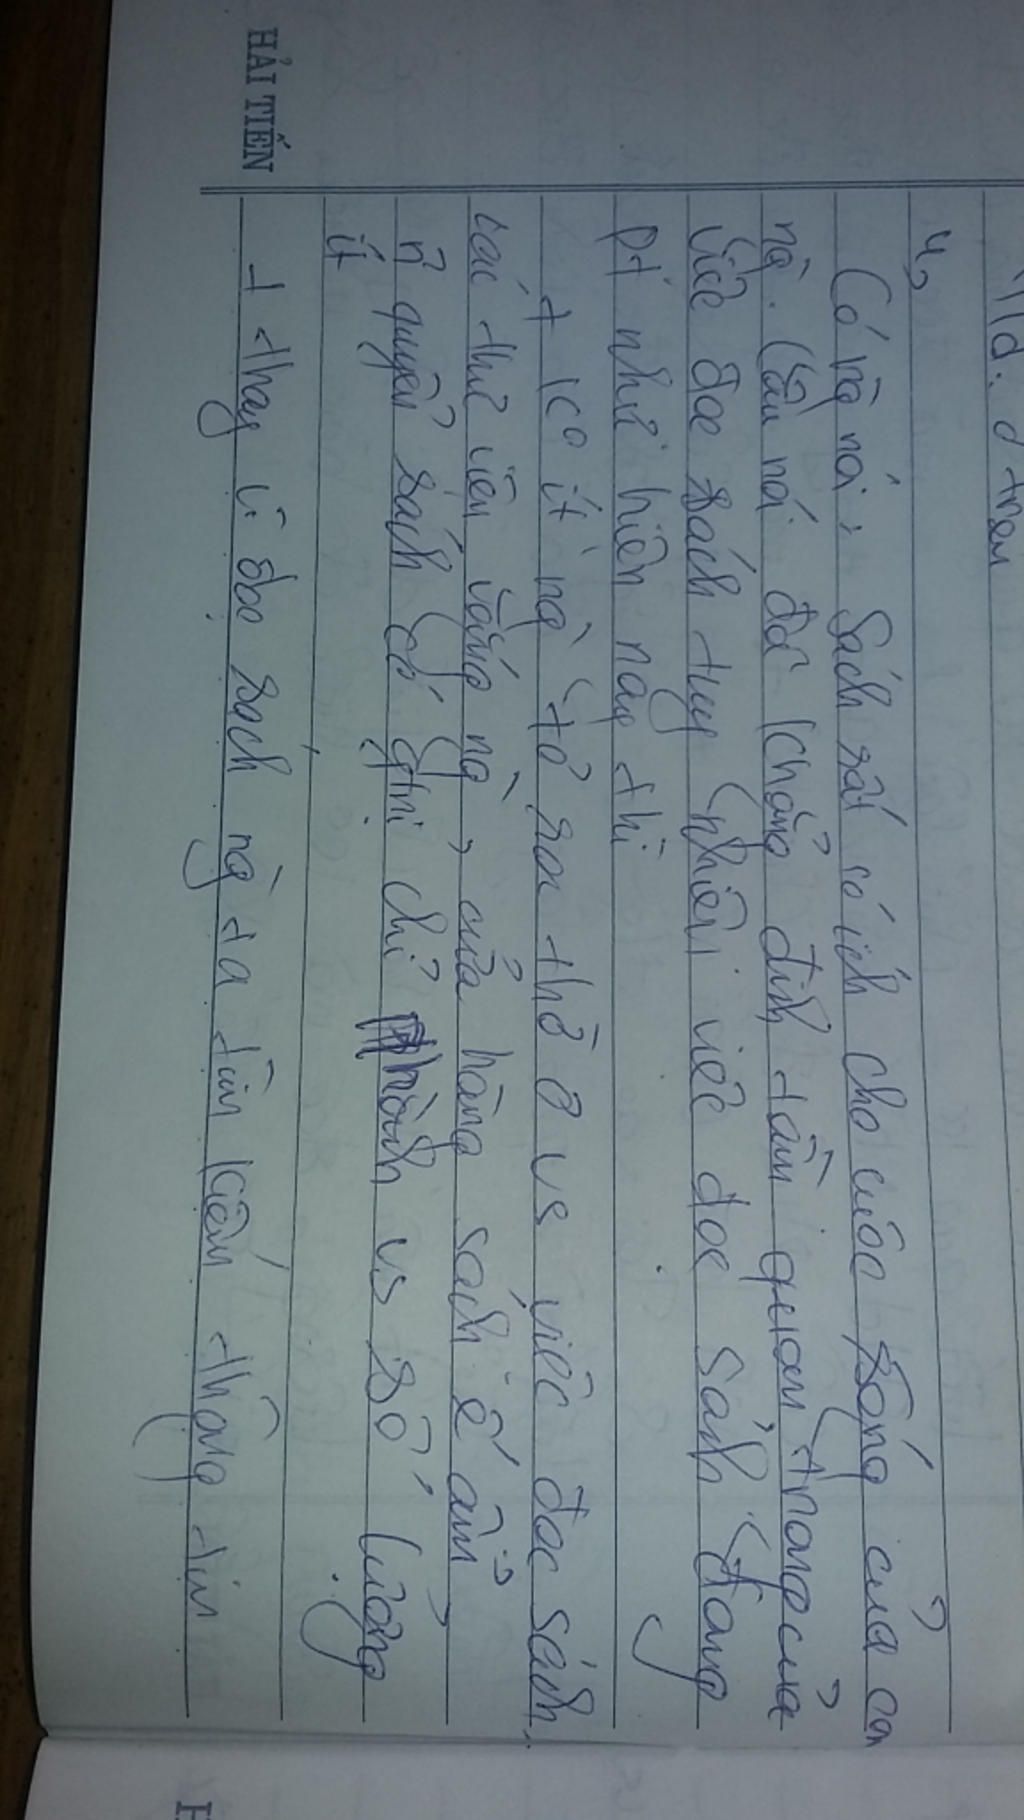 Vd: ở trên
4,
Có ng nói: Sách rất có ích cho cuộc sống của con
ng. Câu nói đã khẳng định tầm quan trọng của
việc đọc sách tuy nhiên việc đọc sách đang
pt như hiện nay thì
+ ko ít ng tỏ ra thờ ơ vs việc đọc sách,
các thư viện vắng ng, cửa hàng sách ế ẩm
n quyển sách có gtrị chỉ hành vs số lượng
ít
+ thay vì đọc sách ng ta tìm kiếm thông tin
HẢI TIẾN
H